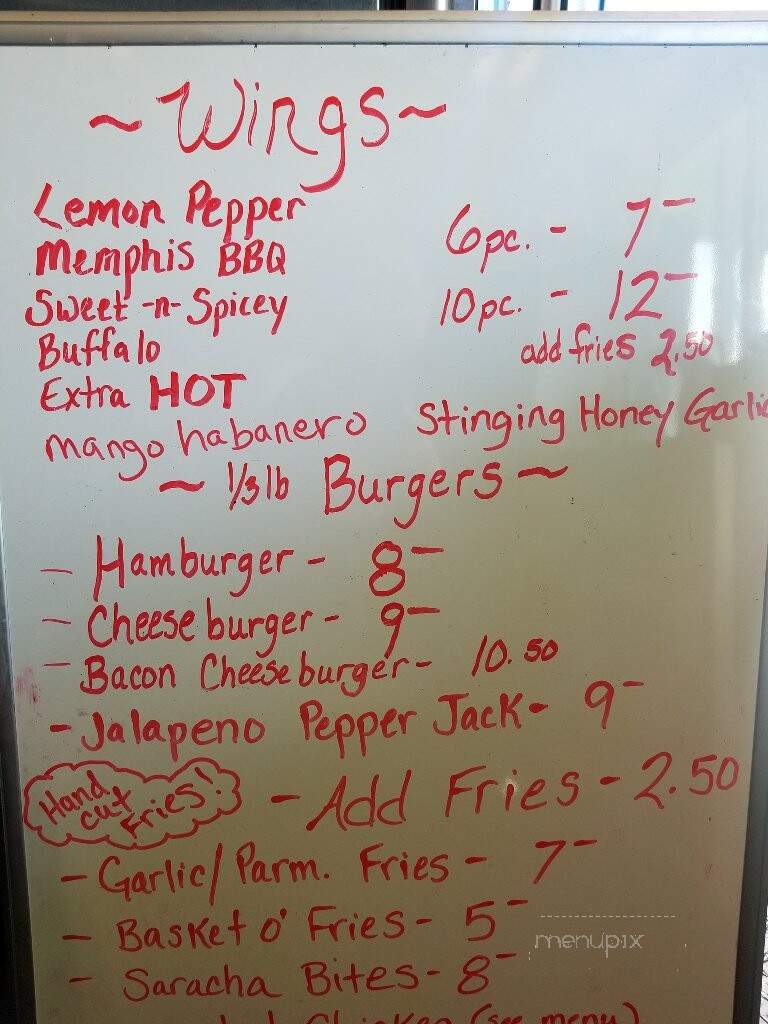 ~ Wings ~
Lemon Pepper
Memphis BBQ
Sweet -n- Spicey
Buffalo
Extra HOT
mango habanero
6pc. - 7-
10pc. - 12-
add fries 2.50
Stinging Honey Garlic
~ 1/3 lb Burgers ~
- Hamburger - 8-
- Cheeseburger - 9-
- Bacon Cheeseburger - 10.50
- Jalapeno Pepper Jack - 9-
Hand cut Fries!
- Add Fries - 2.50
- Garlic/Parm. Fries - 7-
- Basket o' Fries - 5-
- Saracha Bites - 8-
Chicken (see menu)
menupix